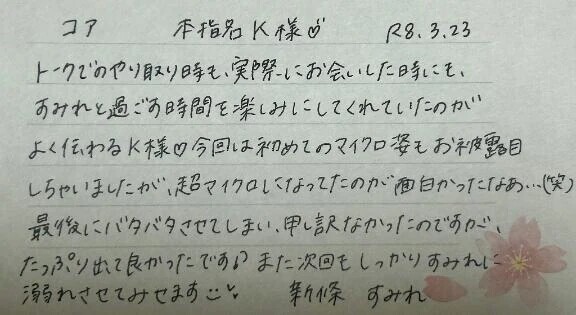 コア 本指名K様♡ R8.3.23
トークでのやり取り時も、実際にお会いした時にも、
すみれと過ごす時間を楽しみにしてくれていたのが
よく伝わるK様♡今回は初めてのマイクロ姿もお披露目
しちゃいましたが、超マイクロになってたのが面白かったなあ…(笑)
最後にバタバタさせてしまい、申し訳なかったのですが、
たっぷり出て良かったです♪また次回もしっかりすみれに
溺れさせてみせます 新條 すみれ